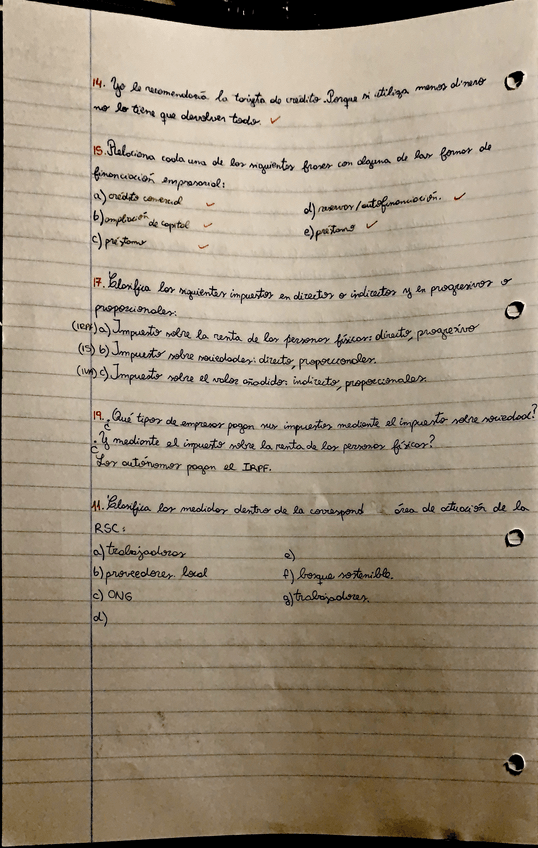 14. Yo le recomendaría la tarjeta de crédito. Porque si utiliza menos dinero
no lo tiene que devolver todo.
15. Relaciona cada una de las siguientes frases con alguna de las formas de
financiación empresarial:
a) crédito comercial
d) reservas/autofinanciación.
b) ampliación de capital
e) préstamo
c) préstamo
17. Clasifica los siguientes impuestos en directos o indirectos y en progresivos o
proporcionales:
(IRPF) a) Impuesto sobre la renta de las personas físicas: directo, progresivo
(IS) b) Impuesto sobre sociedades: directo, proporcionales.
(IVA) c) Impuesto sobre el valor añadido: indirecto, proporcionales.
19. ¿Qué tipos de empresas pagan sus impuestos mediante el impuesto sobre sociedad?
¿Y mediante el impuesto sobre la renta de las personas físicas?
Los autónomos pagan el IRPF.
11. Clasifica las medidas dentro de la correspond área de actuación de la
RSC:
a) trabajadores
e)
b) proveedores. local
f) bosque sostenible.
c) ONG
g) trabajadores.
d)